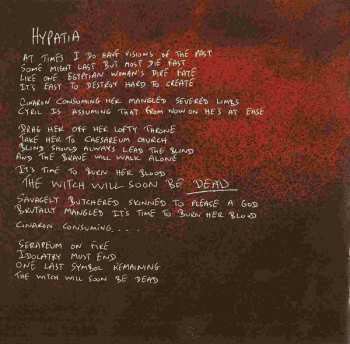 HYPATIA
AT TIMES I DO HAVE VISIONS OF THE PAST
SOME MIGHT LAST BUT MOST DIE FAST
LIKE ONE EGYPTIAN WOMAN'S DIRE FATE
IT'S EASY TO DESTROY HARD TO CREATE
CINARON CONSUMING HER MANGLED SEVERED LIMBS
CYRIL IS ASSUMING THAT FROM NOW ON HE'S AT EASE
DRAG HER OFF HER LOFTY THRONE
TAKE HER TO CAESAREUM CHURCH
BLIND SHOULD ALWAYS LEAD THE BLIND
AND THE BRAVE WILL WALK ALONE
IT'S TIME TO BURN HER BLOOD
THE WITCH WILL SOON BE DEAD
SAVAGELY BUTCHERED SKINNED TO PLEASE A GOD
BRUTALLY MANGLED IT'S TIME TO BURN HER BLOOD
CINARON CONSUMING....
SERAPEUM ON FIRE
IDOLATRY MUST END
ONE LAST SYMBOL REMAINING
THE WITCH WILL SOON BE DEAD